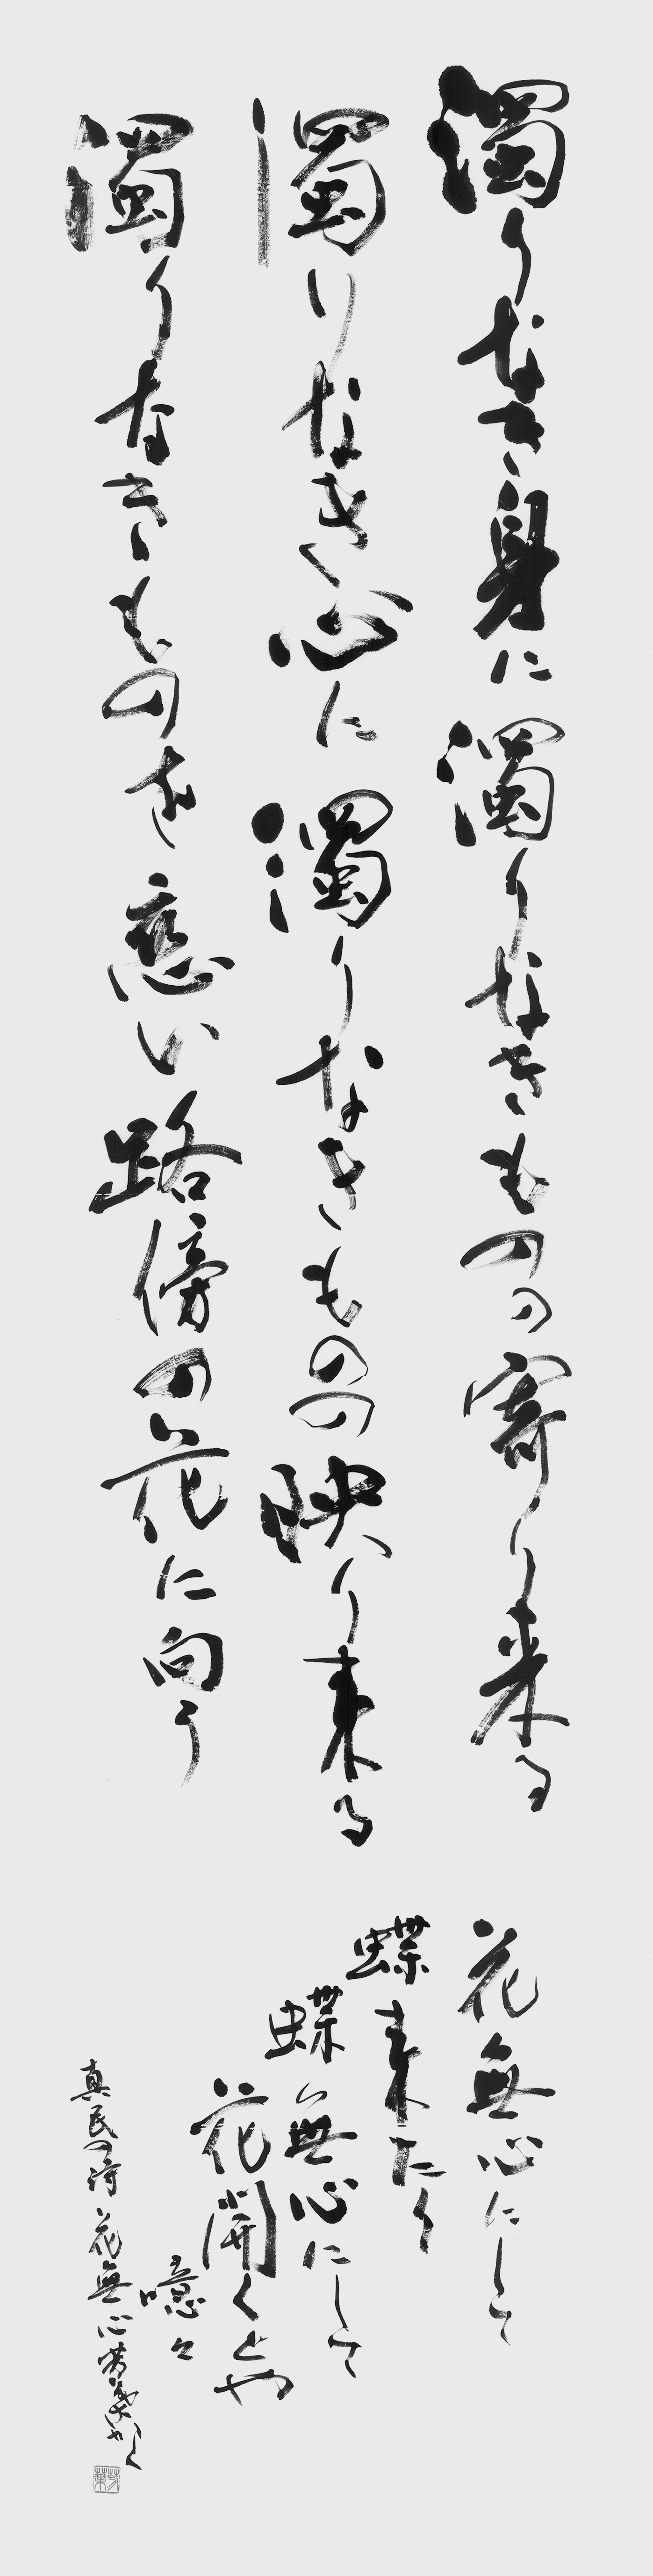 濁りなき身に濁りなきものの寄り来る
濁りなき心に濁りなきものの映り来る
濁りなきものを恋い路傍の花に向う
花無心にして
蝶来たり
蝶無心にして
花開くとや
噫々
真民の詩 花無心 芳葉かく